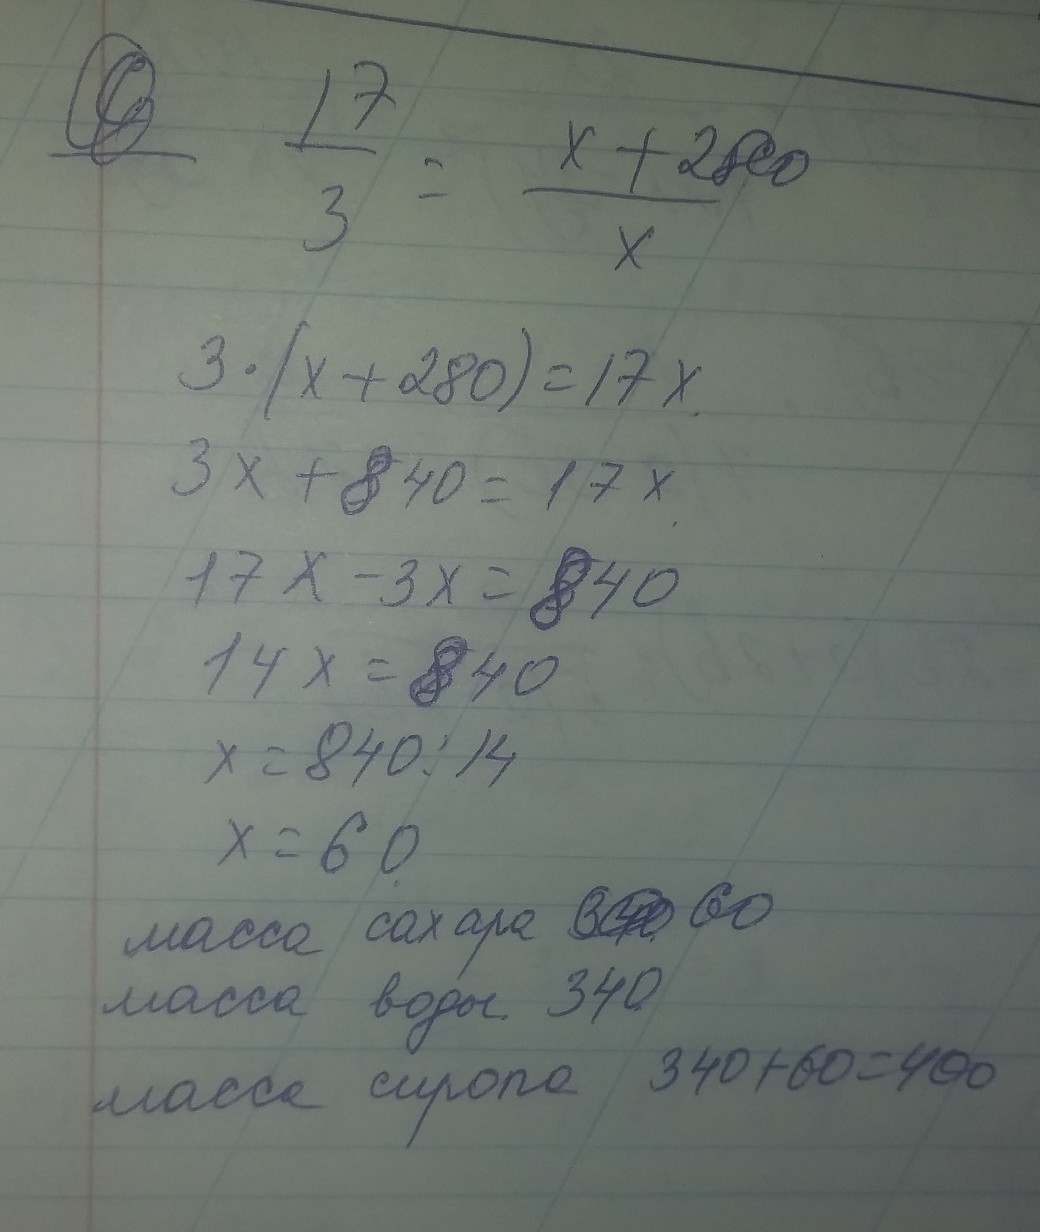 17/3 = x+280/x
3·(x+280)=17x
3x+840=17x
17x-3x=840
14x=840
x=840:14
x=60
масса сахара 60
масса воды 340
масса сиропа 340+60=400